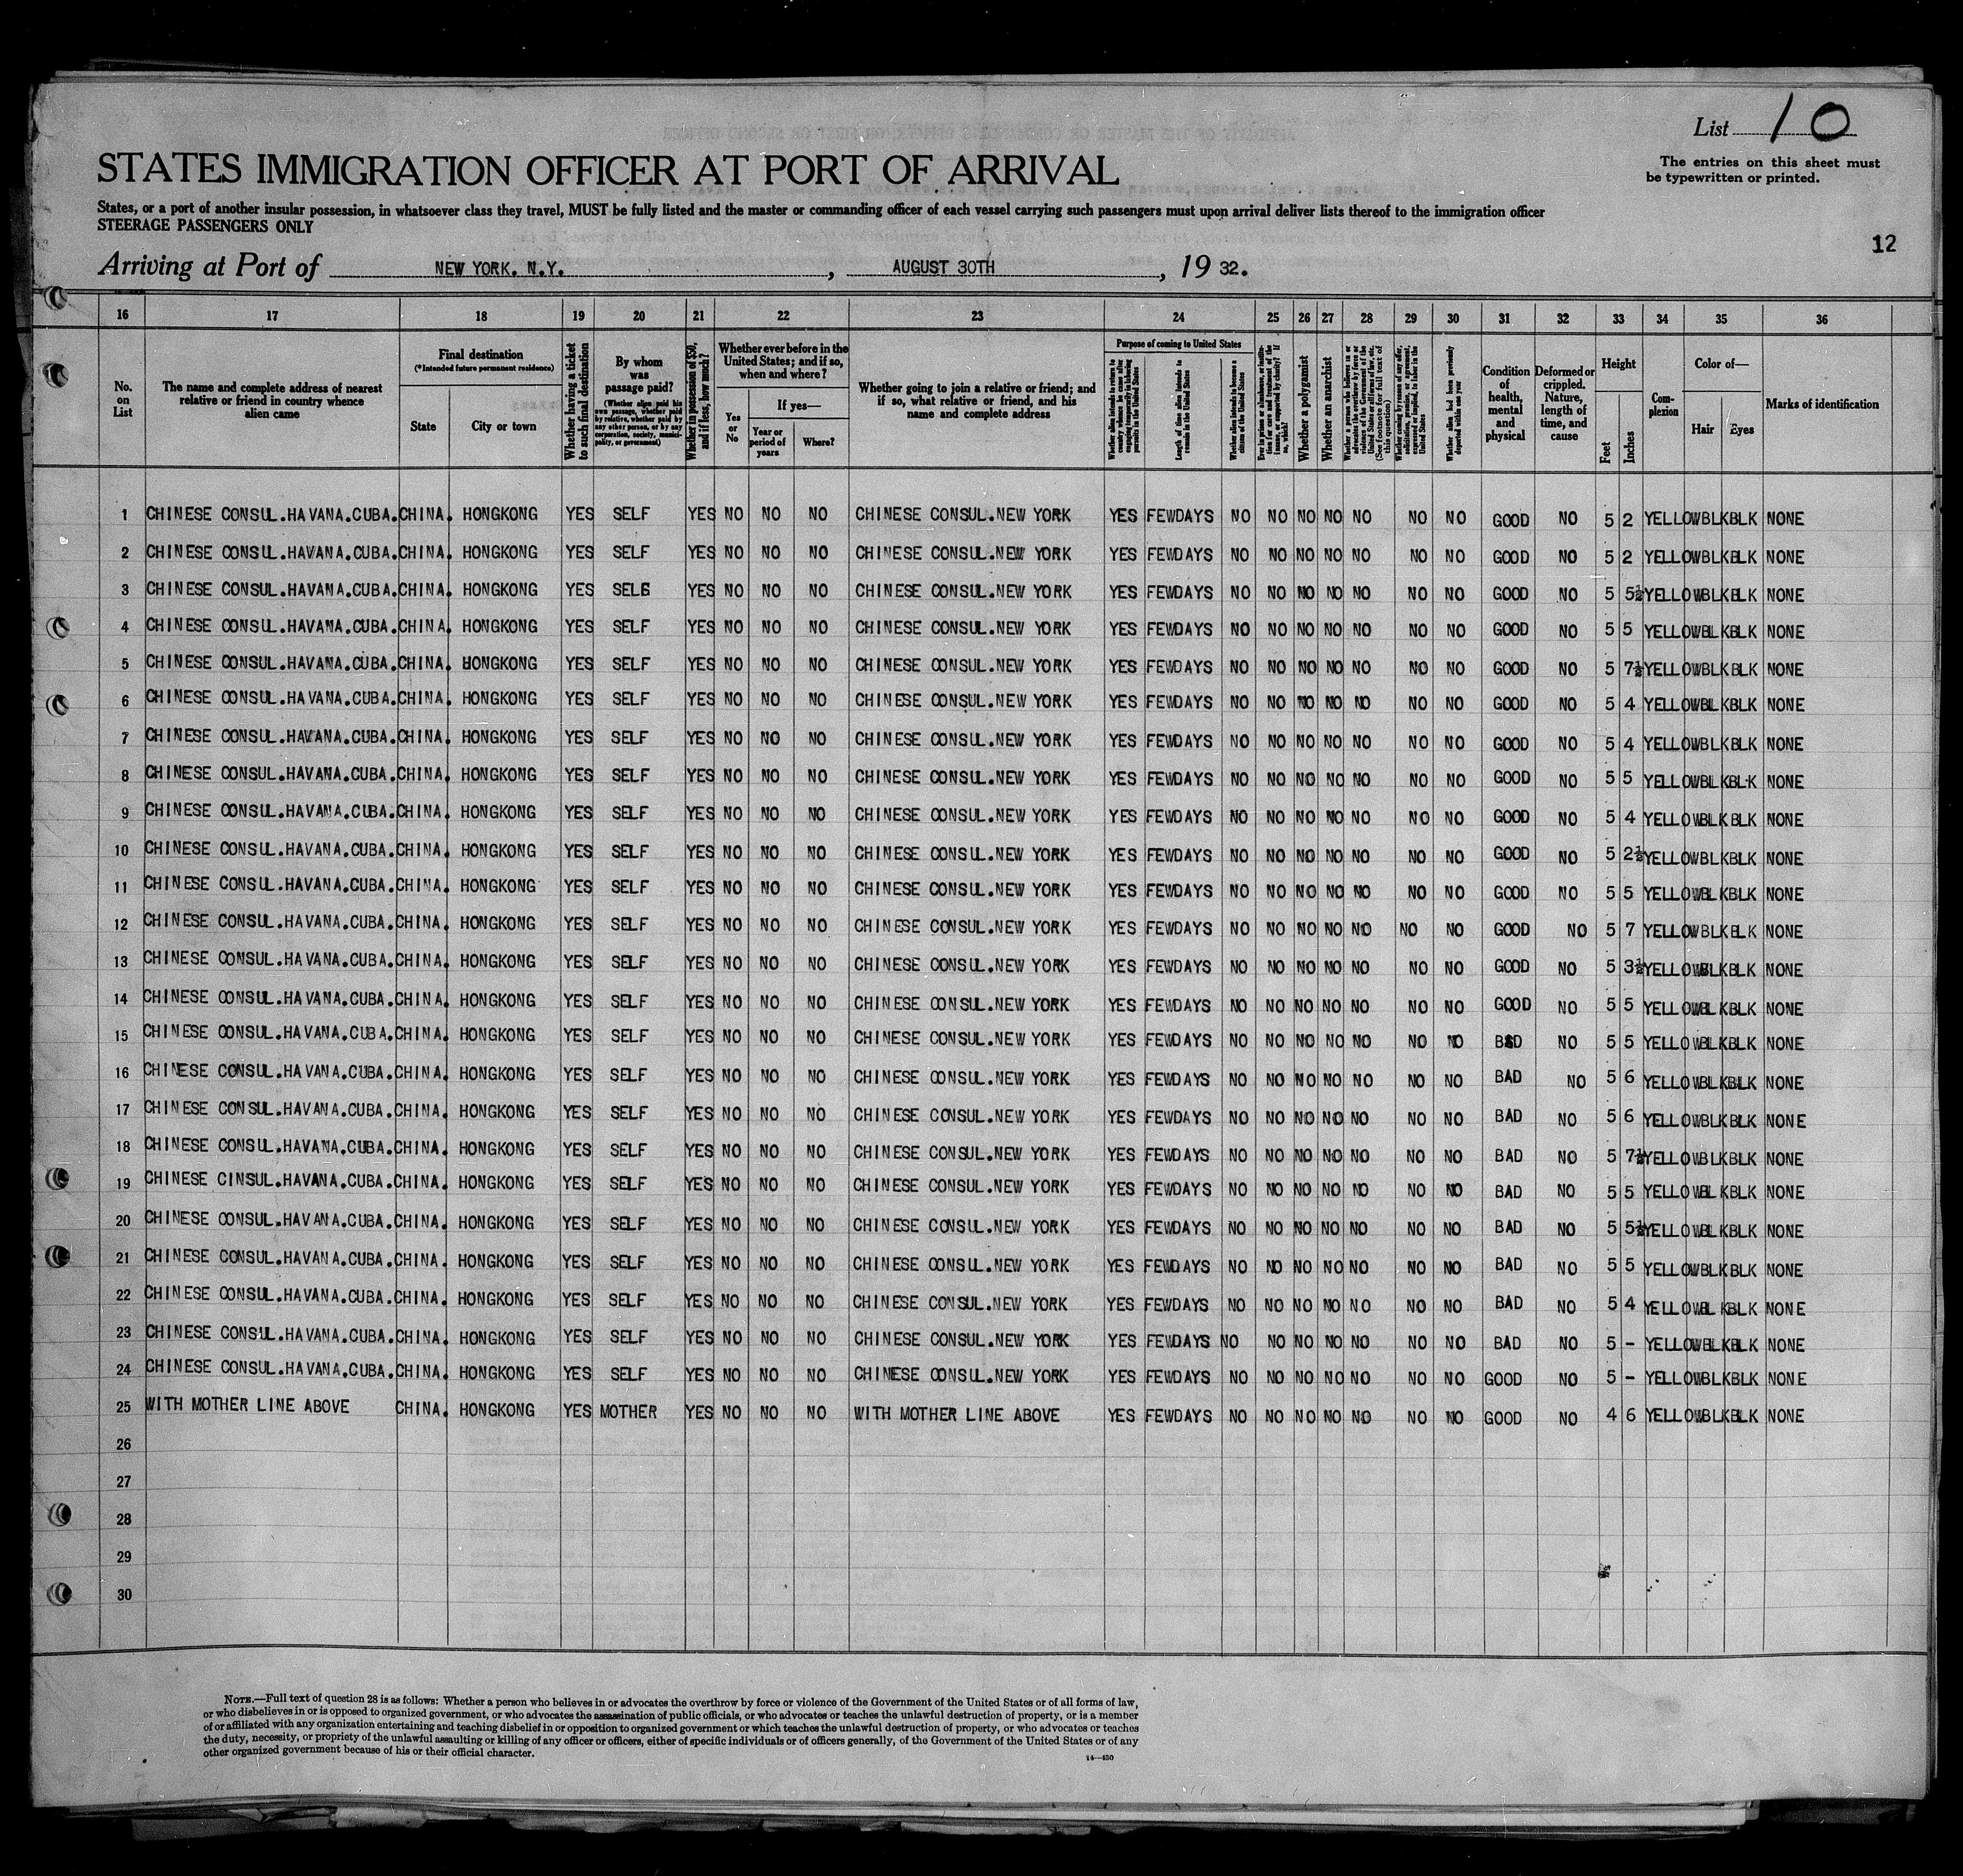 List 10
The entries on this sheet must
be typewritten or printed.
STATES IMMIGRATION OFFICER AT PORT OF ARRIVAL
States, or a port of another insular possession, in whatsoever class they travel, MUST be fully listed and the master or commanding officer of each vessel carrying such passengers must upon arrival deliver lists thereof to the immigration officer
STEERAGE PASSENGERS ONLY
12
Arriving at Port of NEW YORK. N.Y. , AUGUST 30TH , 19 32.
16 17 18 19 20 21 22 23 24 25 26 27 28 29 30 31 32 33 34 35 36
No. on List
The name and complete address of nearest relative or friend in country whence alien came
Final destination
(*Intended future permanent residence)
State
City or town
Whether having a ticket to such final destination
By whom was passage paid?
(Whether alien paid his own passage, whether paid by relative, whether paid by any other person, or by any corporation, society, municipality, or government)
Whether in possession of $50, and if less, how much?
Whether ever before in the United States; and if so, when and where?
Yes or No
If yes—
Year or period of years
Where?
Whether going to join a relative or friend; and if so, what relative or friend, and his name and complete address
Purpose of coming to United States
Whether alien intends to return to country whence he came after engaging temporarily in laboring pursuits in the United States
Length of time alien intends to remain in the United States
Whether alien intends to become a citizen of the United States
Ever in prison or almshouse, or institution for care and treatment of the insane, or supported by charity? If so, which?
Whether a polygamist
Whether an anarchist
(See footnote for full text of this question)
Whether coming by reason of any offer, solicitation, promise, or agreement, expressed or implied, to labor in the United States
Whether alien had been previously deported within one year
Condition of health, mental and physical
Deformed or crippled. Nature, length of time, and cause
Height
Feet
Inches
Complexion
Color of—
Hair
Eyes
Marks of identification
1 CHINESE CONSUL.HAVANA.CUBA. CHINA. HONGKONG YES SELF YES NO NO NO CHINESE CONSUL.NEW YORK YES FEWDAYS NO NO NO NO NO NO NO GOOD NO 5 2 YELLOW BLK BLK NONE
2 CHINESE CONSUL.HAVANA.CUBA. CHINA. HONGKONG YES SELF YES NO NO NO CHINESE CONSUL.NEW YORK YES FEWDAYS NO NO NO NO NO NO NO GOOD NO 5 2 YELLOW BLK BLK NONE
3 CHINESE CONSUL.HAVANA.CUBA. CHINA. HONGKONG YES SELG YES NO NO NO CHINESE CONSUL.NEW YORK YES FEWDAYS NO NO NO NO NO NO NO GOOD NO 5 5½ YELLOW BLK BLK NONE
4 CHINESE CONSUL.HAVANA.CUBA. CHINA. HONGKONG YES SELF YES NO NO NO CHINESE CONSUL.NEW YORK YES FEWDAYS NO NO NO NO NO NO NO GOOD NO 5 5 YELLOW BLK BLK NONE
5 CHINESE CONSUL.HAVANA.CUBA. CHINA. HONGKONG YES SELF YES NO NO NO CHINESE CONSUL.NEW YORK YES FEWDAYS NO NO NO NO NO NO NO GOOD NO 5 7½ YELLOW BLK BLK NONE
6 CHINESE CONSUL.HAVANA.CUBA. CHINA. HONGKONG YES SELF YES NO NO NO CHINESE CONSUL.NEW YORK YES FEWDAYS NO NO NO NO NO NO NO GOOD NO 5 4 YELLOW BLK BLK NONE
7 CHINESE CONSUL.HAVANA.CUBA. CHINA. HONGKONG YES SELF YES NO NO NO CHINESE CONSUL.NEW YORK YES FEWDAYS NO NO NO NO NO NO NO GOOD NO 5 4 YELLOW BLK BLK NONE
8 CHINESE CONSUL.HAVANA.CUBA. CHINA. HONGKONG YES SELF YES NO NO NO CHINESE CONSUL.NEW YORK YES FEWDAYS NO NO NO NO NO NO NO GOOD NO 5 5 YELLOW BLK BLK NONE
9 CHINESE CONSUL.HAVANA.CUBA. CHINA. HONGKONG YES SELF YES NO NO NO CHINESE CONSUL.NEW YORK YES FEWDAYS NO NO NO NO NO NO NO GOOD NO 5 4 YELLOW BLK BLK NONE
10 CHINESE CONSUL.HAVANA.CUBA. CHINA. HONGKONG YES SELF YES NO NO NO CHINESE CONSUL.NEW YORK YES FEWDAYS NO NO NO NO NO NO NO GOOD NO 5 2½ YELLOW BLK BLK NONE
11 CHINESE CONSUL.HAVANA.CUBA. CHINA. HONGKONG YES SELF YES NO NO NO CHINESE CONSUL.NEW YORK YES FEWDAYS NO NO NO NO NO NO NO GOOD NO 5 5 YELLOW BLK BLK NONE
12 CHINESE CONSUL.HAVANA.CUBA. CHINA. HONGKONG YES SELF YES NO NO NO CHINESE CONSUL.NEW YORK YES FEWDAYS NO NO NO NO NO NO NO GOOD NO 5 7 YELLOW BLK BLK NONE
13 CHINESE CONSUL.HAVANA.CUBA. CHINA. HONGKONG YES SELF YES NO NO NO CHINESE CONSUL.NEW YORK YES FEWDAYS NO NO NO NO NO NO NO GOOD NO 5 3½ YELLOW BLK BLK NONE
14 CHINESE CONSUL.HAVANA.CUBA. CHINA. HONGKONG YES SELF YES NO NO NO CHINESE CONSUL.NEW YORK YES FEWDAYS NO NO NO NO NO NO NO GOOD NO 5 5 YELLOW BLK BLK NONE
15 CHINESE CONSUL.HAVANA.CUBA. CHINA. HONGKONG YES SELF YES NO NO NO CHINESE CONSUL.NEW YORK YES FEWDAYS NO NO NO NO NO NO NO BAD NO 5 5 YELLOW BLK BLK NONE
16 CHINESE CONSUL.HAVANA.CUBA. CHINA. HONGKONG YES SELF YES NO NO NO CHINESE CONSUL.NEW YORK YES FEWDAYS NO NO NO NO NO NO NO BAD NO 5 6 YELLOW BLK BLK NONE
17 CHINESE CONSUL.HAVANA.CUBA. CHINA. HONGKONG YES SELF YES NO NO NO CHINESE CONSUL.NEW YORK YES FEWDAYS NO NO NO NO NO NO NO BAD NO 5 6 YELLOW BLK BLK NONE
18 CHINESE CONSUL.HAVANA.CUBA. CHINA. HONGKONG YES SELF YES NO NO NO CHINESE CONSUL.NEW YORK YES FEWDAYS NO NO NO NO NO NO NO BAD NO 5 7½ YELLOW BLK BLK NONE
19 CHINESE CINSUL.HAVANA.CUBA. CHINA. HONGKONG YES SELF YES NO NO NO CHINESE CONSUL.NEW YORK YES FEWDAYS NO NO NO NO NO NO NO BAD NO 5 5 YELLOW BLK BLK NONE
20 CHINESE CONSUL.HAVANA.CUBA. CHINA. HONGKONG YES SELF YES NO NO NO CHINESE CONSUL.NEW YORK YES FEWDAYS NO NO NO NO NO NO NO BAD NO 5 5½ YELLOW BLK BLK NONE
21 CHINESE CONSUL.HAVANA.CUBA. CHINA. HONGKONG YES SELF YES NO NO NO CHINESE CONSUL.NEW YORK YES FEWDAYS NO NO NO NO NO NO NO BAD NO 5 5 YELLOW BLK BLK NONE
22 CHINESE CONSUL.HAVANA.CUBA. CHINA. HONGKONG YES SELF YES NO NO NO CHINESE CONSUL.NEW YORK YES FEWDAYS NO NO NO NO NO NO NO BAD NO 5 4 YELLOW BLK BLK NONE
23 CHINESE CONSUL.HAVANA.CUBA. CHINA. HONGKONG YES SELF YES NO NO NO CHINESE CONSUL.NEW YORK YES FEWDAYS NO NO NO NO NO NO NO BAD NO 5 - YELLOW BLK BLK NONE
24 CHINESE CONSUL.HAVANA.CUBA. CHINA. HONGKONG YES SELF YES NO NO NO CHINESE CONSUL.NEW YORK YES FEWDAYS NO NO NO NO NO NO NO GOOD NO 5 - YELLOW BLK BLK NONE
25 WITH MOTHER LINE ABOVE CHINA. HONGKONG YES MOTHER YES NO NO NO WITH MOTHER LINE ABOVE YES FEWDAYS NO NO NO NO NO NO NO GOOD NO 4 6 YELLOW BLK BLK NONE
26
27
28
29
30
NOTE.—Full text of question 28 is as follows: Whether a person who believes in or advocates the overthrow by force or violence of the Government of the United States or of all forms of law,
or who disbelieves in or is opposed to organized government, or who advocates the assassination of public officials, or who advocates or teaches the unlawful destruction of property, or is a member
of or affiliated with any organization entertaining and teaching disbelief in or opposition to organized government or which teaches the unlawful destruction of property, or who advocates or teaches
the duty, necessity, or propriety of the unlawful assaulting or killing of any officer or officers, either of specific individuals or of officers generally, of the Government of the United States or of any
other organized government because of his or their official character.
14—430